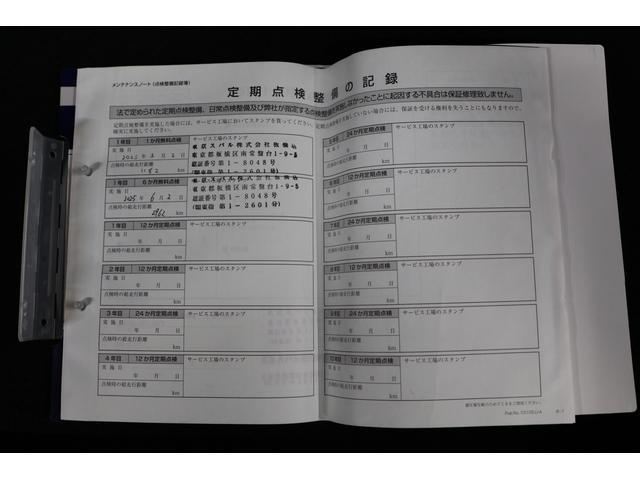 メンテナンスノート（点検整備記録簿）
定期点検整備の記録
法で定められた定期点検整備、日常点検整備及び弊社が指定する点検整備を実施しなかったことに起因する不具合は保証修理致しません。
定期点検整備を実施した場合には、サービス工場においてスタンプを貰ってください。
確実に実施してください。
していない場合には、保証を受ける権利を失うことにもなりますので、
1年目 1か月無料点検
サービス工場のスタンプ
実施日
東京スバル株式会社板橋店
東京都板橋区南常盤台1-9-5
認証番号第1-8048号
点検時の総走行距離
(関東指 第1-2601号)
km
1年目 6か月無料点検
サービス工場のスタンプ
実施日
東京スバル株式会社板橋店
2025年 6月 2日
東京都板橋区南常盤台1-9-5
認証番号第1-8048号
点検時の総走行距離
(関東指 第1-2601号)
km
1年目 12か月定期点検
サービス工場のスタンプ
実施日
年 月 日
点検時の総走行距離
km
2年目 12か月定期点検
サービス工場のスタンプ
実施日
年 月 日
点検時の総走行距離
km
3年目 24か月定期点検
サービス工場のスタンプ
実施日
年 月 日
点検時の総走行距離
km
4年目 12か月定期点検
サービス工場のスタンプ
実施日
年 月 日
点検時の総走行距離
km
24か月定期点検
サービス工場のスタンプ
年 月 日
点検時の総走行距離
km
12か月定期点検
サービス工場のスタンプ
年 月 日
点検時の総走行距離
km
7年目 24か月定期点検
サービス工場のスタンプ
年 月 日
点検時の総走行距離
km
12か月定期点検
サービス工場のスタンプ
年 月 日
点検時の総走行距離
km
24か月定期点検
サービス工場のスタンプ
年 月 日
点検時の総走行距離
km
10年目 12か月定期点検
サービス工場のスタンプ
年 月 日
点検時の総走行距離
km